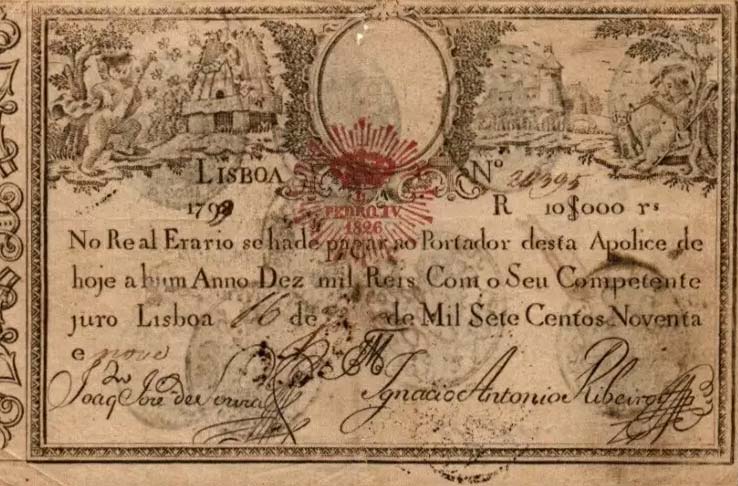 LISBOA Nº
1799 R 10$000 rs
PEDRO IV
1826
No Real Erario se hade pagar ao Portador desta Apolice de
hoje a hum Anno Dez mil Reis Com o Seu Competente
juro Lisboa 16 de de Mil Sete Centos Noventa
e nove
Joaq José de Souza Ignacio Antonio Ribeiro